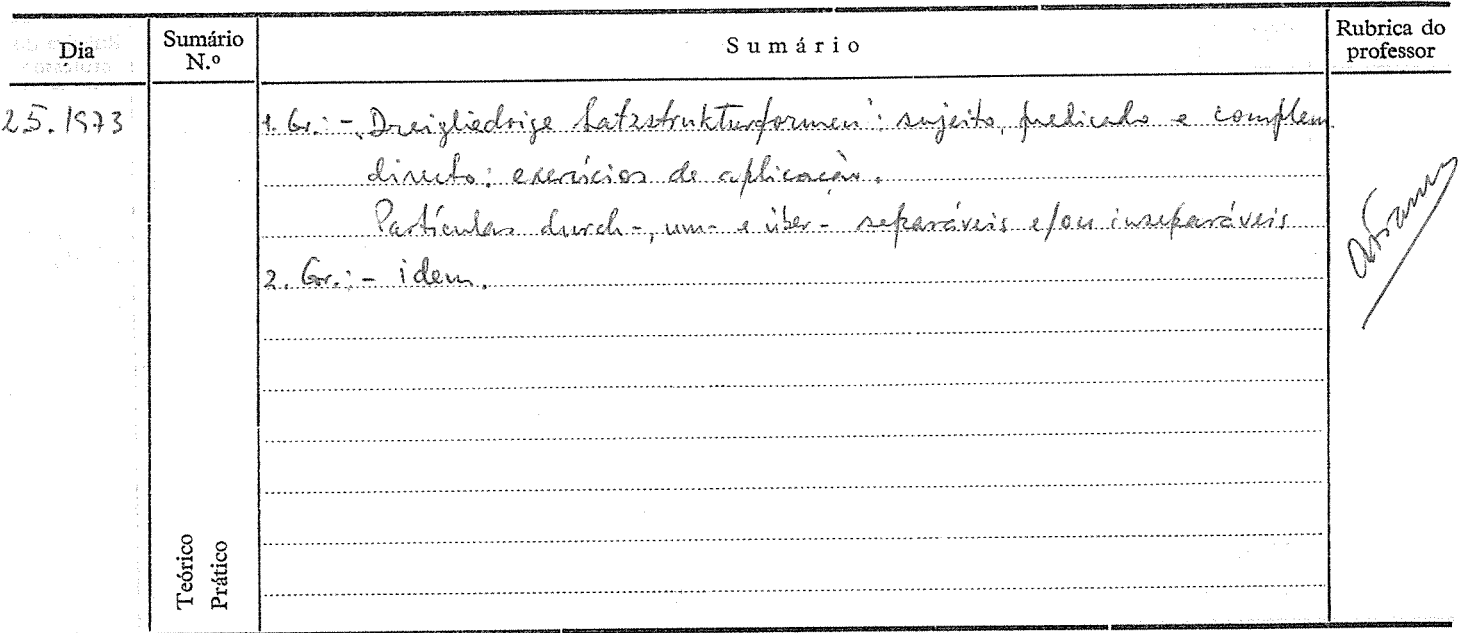 Dia
Sumário N.º
Sumário
Rubrica do professor
2.5.1973
1. Gr.: - „Dreigliedrige Satzstrukturformen": sujeito, predicado e complem.
directo: exercícios de aplicação.
Partículas durch-, um- e über- separáveis e/ou inseparáveis
2. Gr.: - idem.
Teórico
Prático